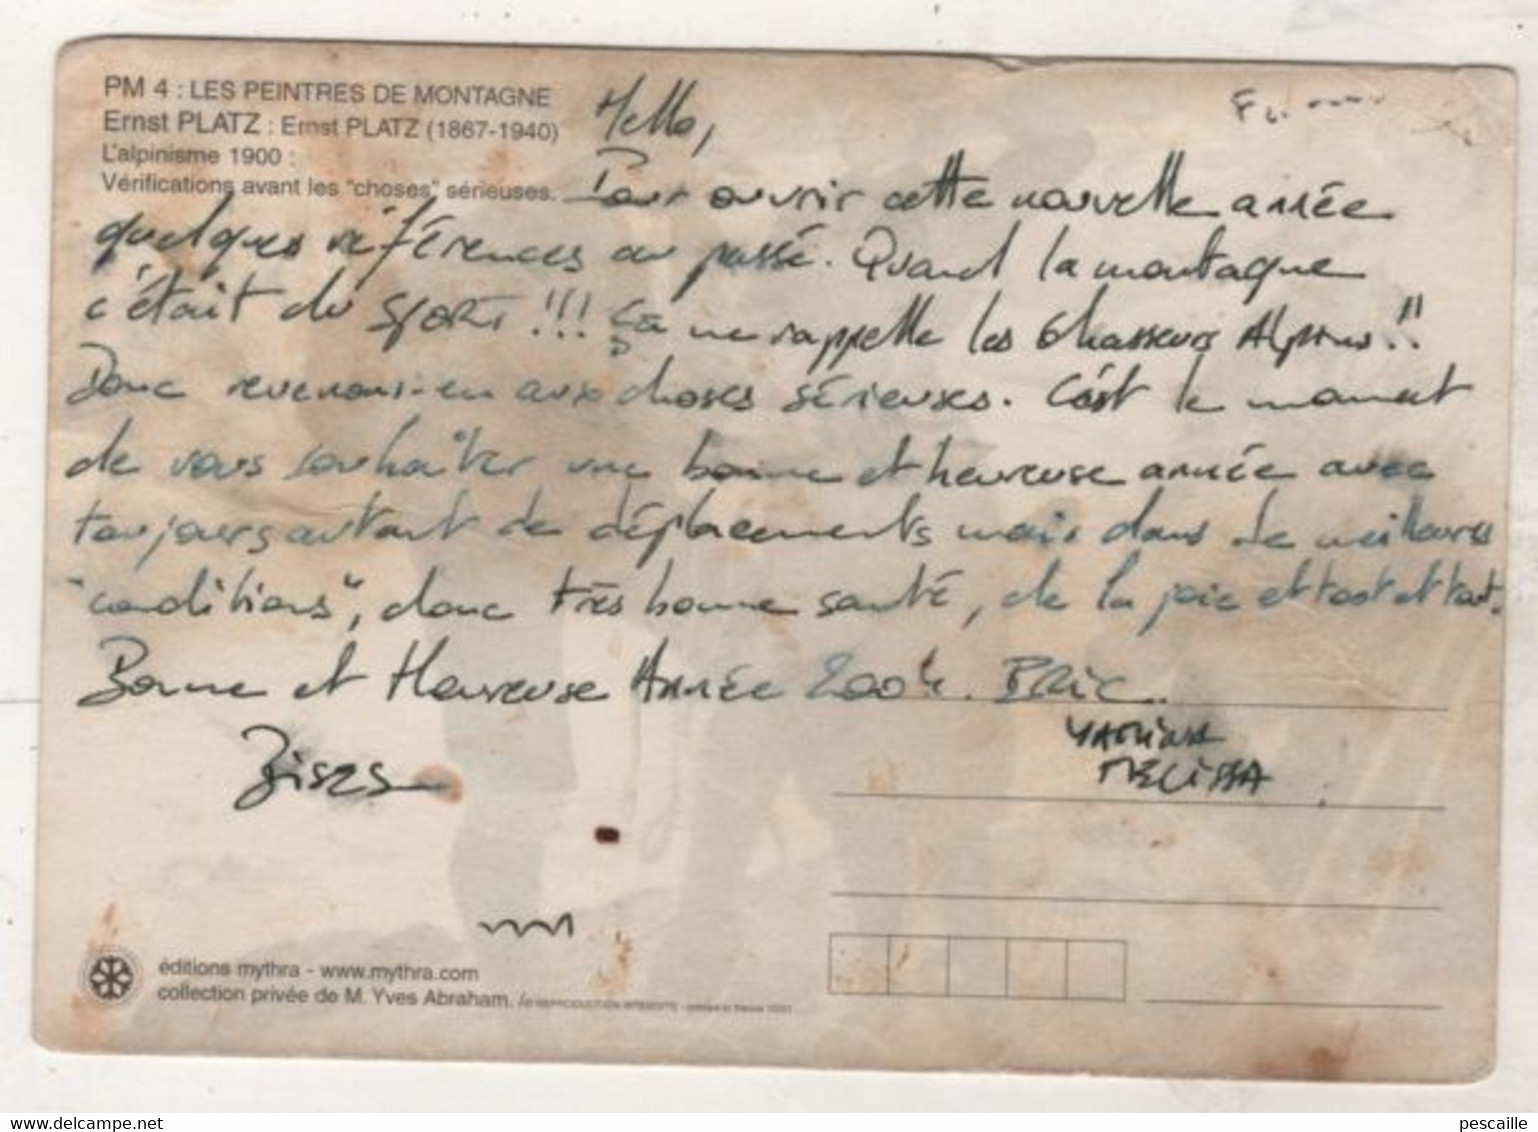 PM 4 : LES PEINTRES DE MONTAGNE
Ernst PLATZ : Ernst PLATZ (1867-1940)
L'alpinisme 1900 :
Vérifications avant les "choses" sérieuses.
Hello,
Pour ouvrir cette nouvelle année
quelques références au passé. Quand la montagne
c'était du SPORT !!! Ça me rappelle les Chasseurs Alpins !!
Donc revenons-en aux choses sérieuses. C'est le moment
de vous souhaiter une bonne et heureuse année avec
toujours autant de déplacements mais dans de meilleures
"conditions", donc très bonne santé, de la joie et tout et tout.
Bonne et Heureuse Année 2004. ERIC
MELISSA
Bises
éditions mythra - www.mythra.com
collection privée de M. Yves Abraham. /© REPRODUCTION INTERDITE -
pescaille
www.delcampe.net